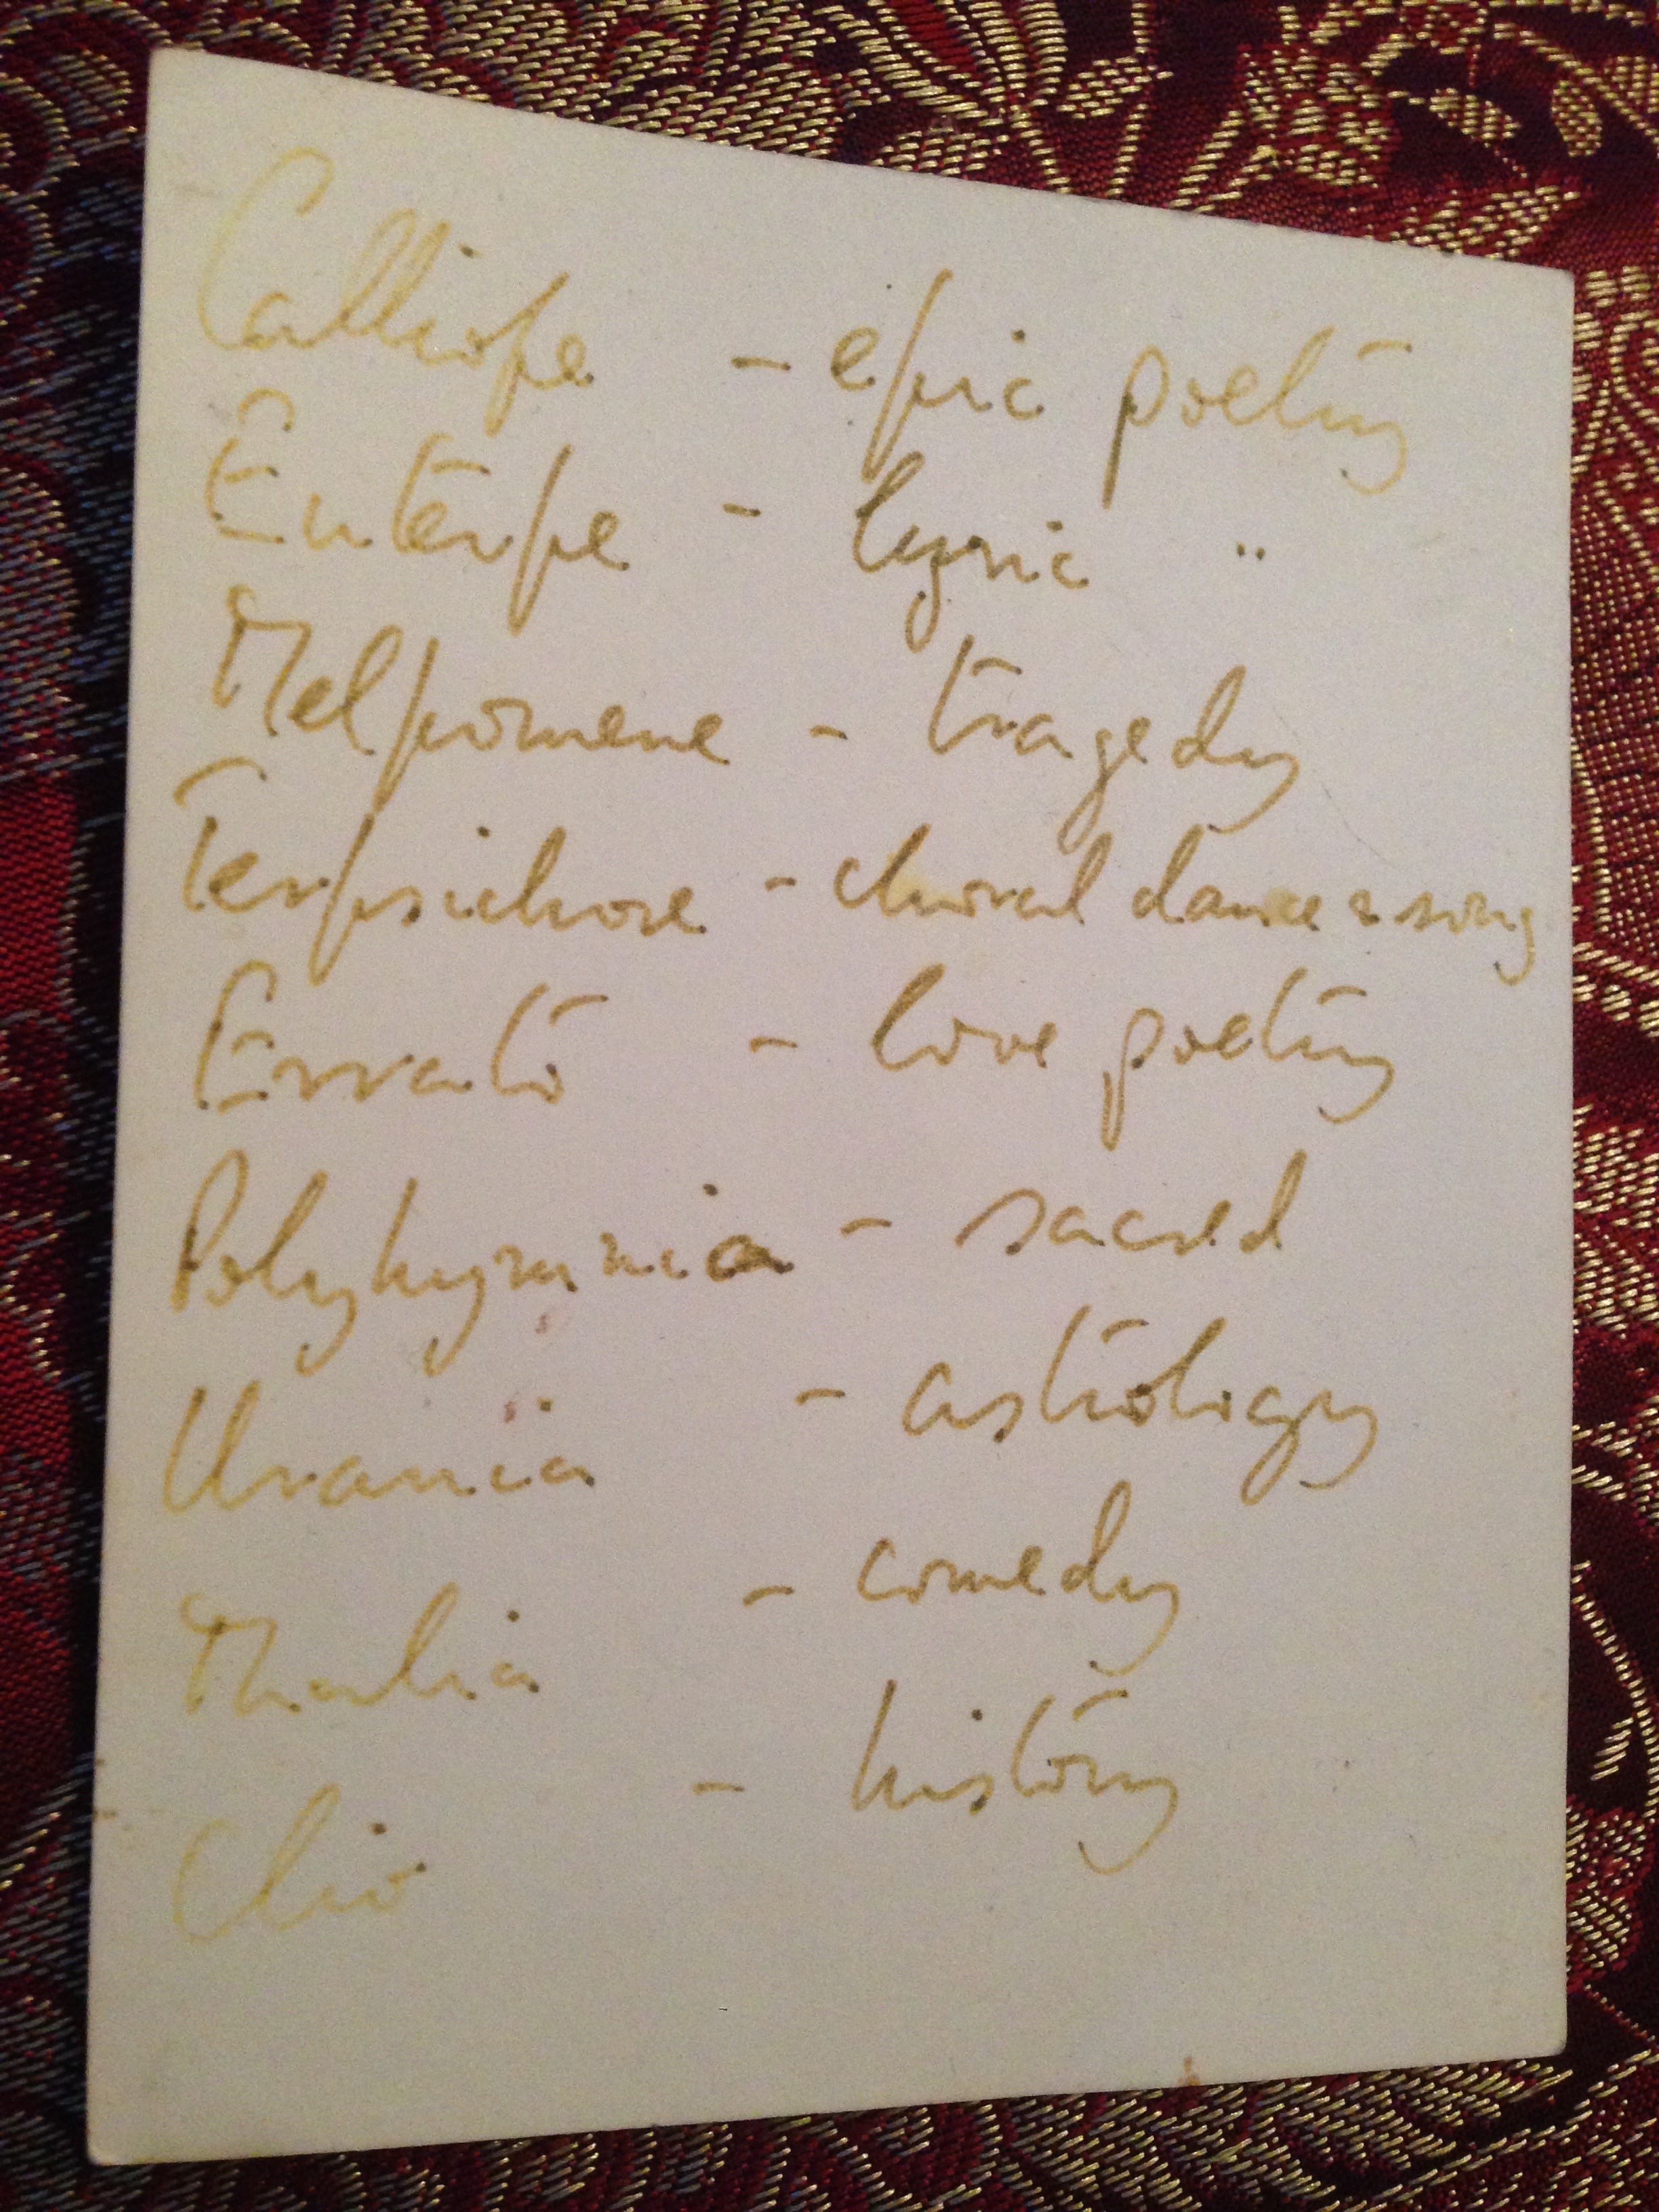 Calliope - epic poetry
Euterpe - lyric "
Melpomene - tragedy
Terpsichore - choral dance & song
Errato - love poetry
Polyhymnia - sacred
Urania - astrology
Thalia - comedy
Clio - history